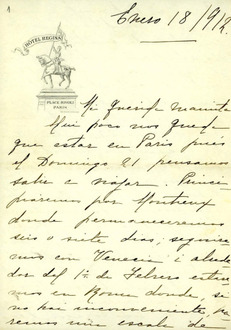 1
Enero 18/912.
HOTEL REGINA
PLACE RIVOLI
PARIS
Mi querida mamita
Mui poco nos queda
que estar en Paris pues
el Domingo 21 pensamos
salir a viajar. Princi
piaremos por Montreux
donde permaneceremos
seis o siete dias; seguire
mos con Venecia i alrede
dor del 1º de Febrero estare
mos en Roma donde, si
no hai inconveniente, ha
remos una escala de